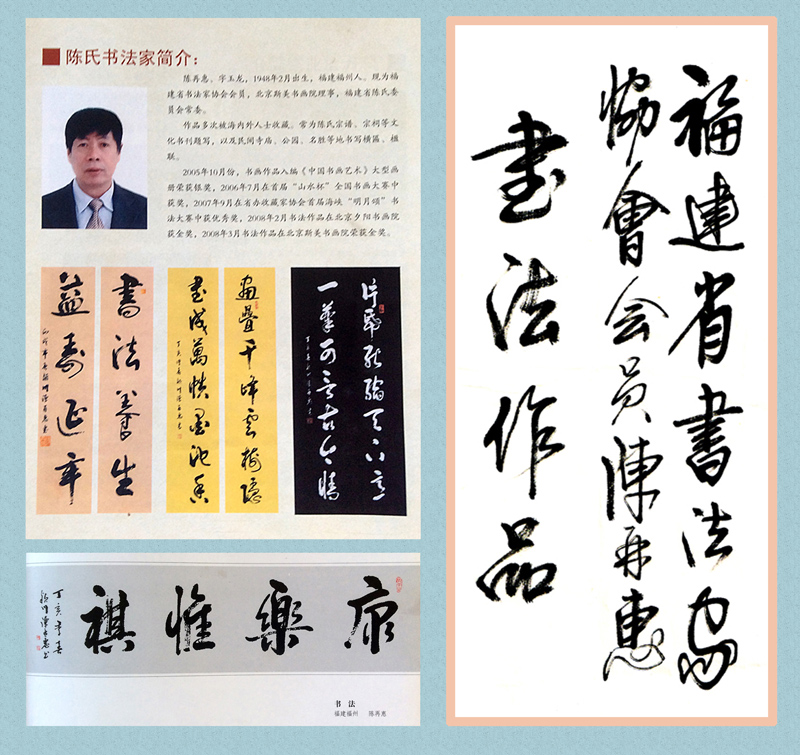 陈氏书法家简介:
陈再惠。字玉龙,1948年2月出生,福建福州人。现为福
建省书法家协会会员,北京斯美书画院理事,福建省陈氏委
员会常委。
作品多次被海内外人士收藏。常为陈氏宗谱、宗祠等文
化书刊题写,以及民间寺庙。公园、名胜等地书写横匾、楹
联。
2005年10月份,书画作品入编《中国书画艺术》大型画
册荣获银奖,2006年7月在首届“山水杯”全国书画大赛中
获奖,2007年9月在省亦收藏家协会首届海峡“明月颂”书
法大赛中获优秀奖,2008年2月书法作品在北京夕阳书画院
获金奖,2008年3月书法作品在北京斯美书画院荣获金奖。
書法養生
益壽延年
畫疊千峰雲樹隱
書成萬帙墨池香
片紙能縮天下意
一筆可言古今情
康樂惟祺
丁亥年春
福州陳再惠書
书 法
福建福州 陈再惠
福建省書法家
協會会员陳再惠
書法作品